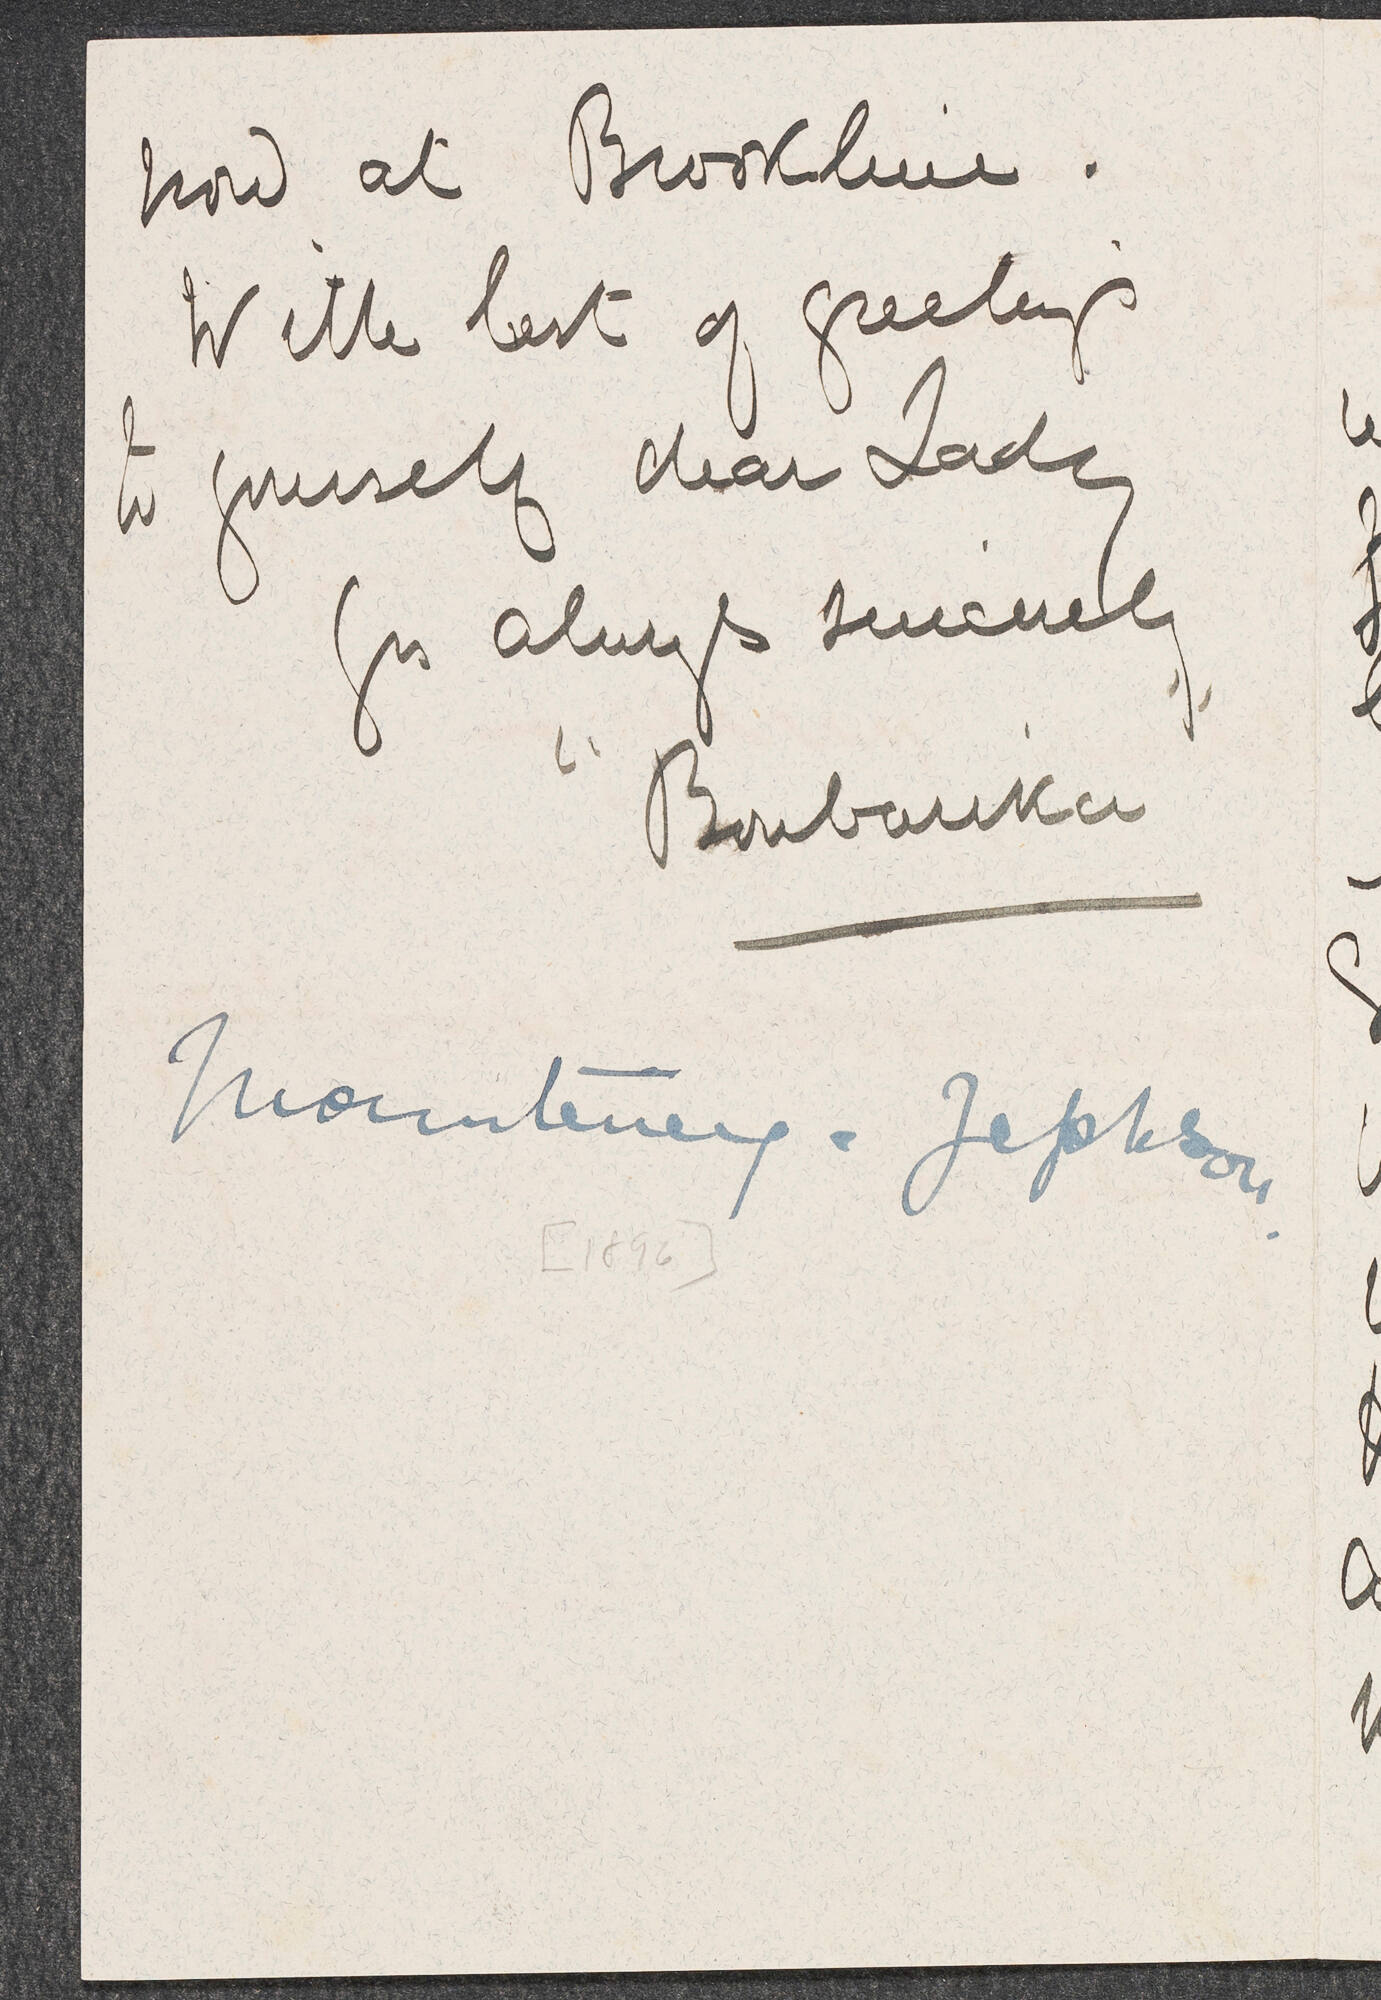 now at Brookline.
With best of greetings
to yourself dear Lady
Yrs always sincerely
"Boubarika"
Mounteney-Jephson.
[1896]